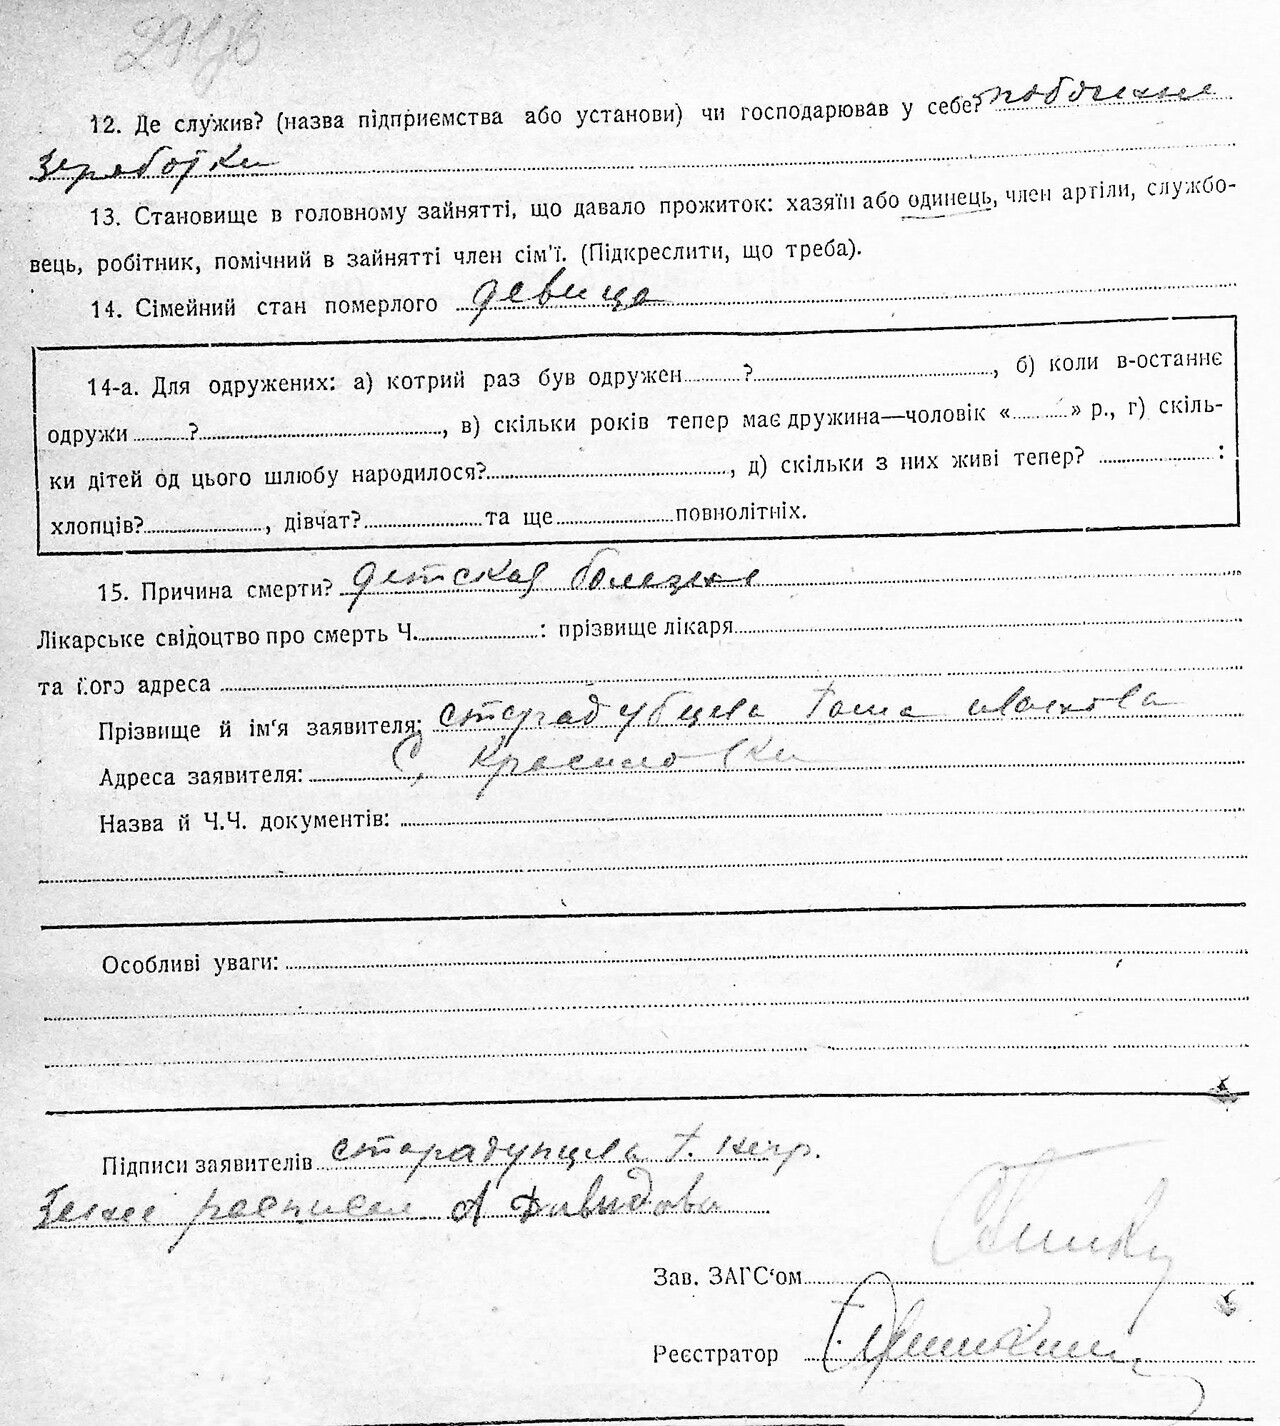 12. Де служив? (назва підприємства або установи) чи господарював у себе? побочные
зеработки
13. Становище в головному зайнятті, що давало прожиток: хазяїн або одинець, член артіли, службо-
вець, робітник, помічний в зайнятті член сім'ї. (Підкреслити, що треба).
14. Сімейний стан померлого девица
14-а. Для одружених: а) котрий раз був одружен ? , б) коли в-останнє
одружи ? , в) скільки років тепер має дружина—чоловік « » р., г) скіль-
ки дітей од цього шлюбу народилося? , д) скільки з них живі тепер? :
хлопців? , дівчат? та ще повнолітніх.
15. Причина смерти? детская болезнь
Лікарське свідоцтво про смерть Ч. : прізвище лікаря
та його адреса
Прізвище й ім'я заявителя: стародубцева
Адреса заявителя: С, Красиловки
Назва й Ч.Ч. документів:
Особливі уваги:
Підписи заявителів старадупцева негр.
росписал А Давыдова
Зав. ЗАГС'ом
Реєстратор